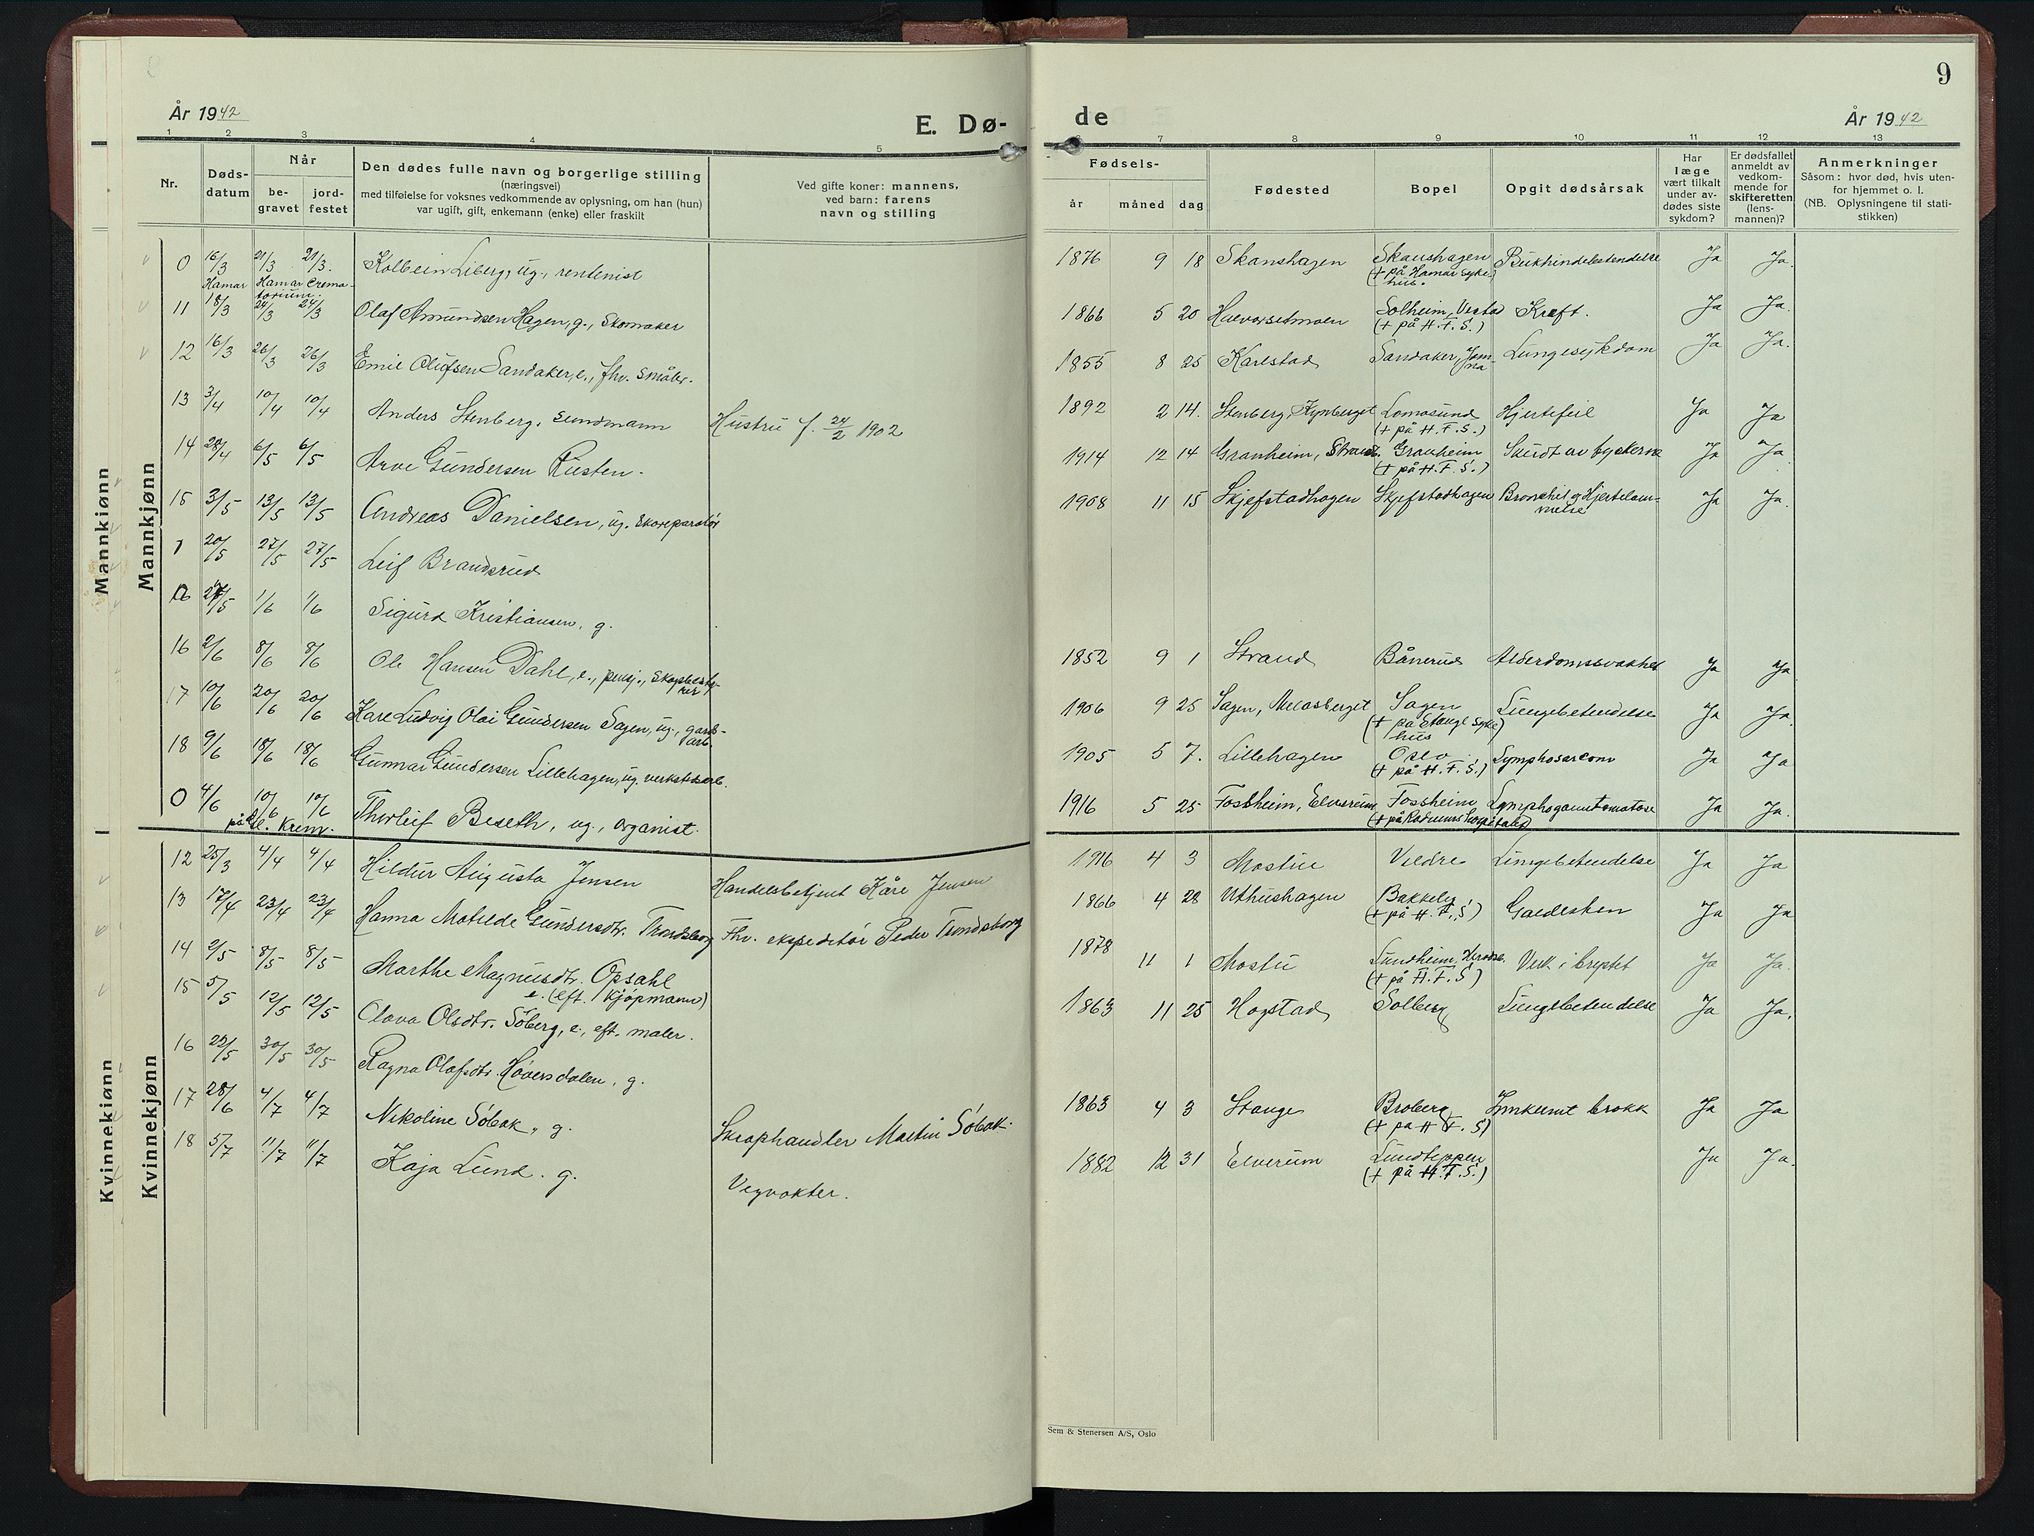 År 1942
E. Dø-
1 2 3 4 5
Nr.
Døds-
datum
Når
be-
gravet
jord-
festet
Den dødes fulle navn og borgerlige stilling
(næringsvei)
med tilføielse for voksnes vedkommende av oplysning, om han (hun)
var ugift, gift, enkemann (enke) eller fraskilt
Ved gifte koner: mannens,
ved barn: farens
navn og stilling
Mannkjønn
Mannkjønn
0 16/3 21/3 21/3. Kolbein Liberg, ug., rentenist
Hamar Hamar Crema-
torium.
11 18/3 24/3 24/3 Olaf Amundsen Hagen, g., Skomaker
12 16/3 26/3 26/3 Emil Olufsen Sandaker, e., fhv. småbr.
13 3/4 10/4 10/4 Anders Stenberg, sundmann Hustru f. 24/2 1902
14 28/4 6/5 6/5 Arve Gundersen Rusten.
15 3/5 13/5 13/5 Andreas Danielsen, ug. skoreparatør
20/5 27/5 27/5 Leif Brandsrud
27/5 1/6 1/6 Sigurd Kristiansen, g.
16 2/6 8/6 8/6 Ole Hansen Dahl, e., pensj.,
17 10/6 20/6 20/6 Kåre Ludvig Olai Gundersen Sagen, ug., gards-
arb.
18 9/6 18/6 18/6 Gunnar Gundersen Lillehagen, ug.
0 4/6 10/6 10/6 Thorleif Beseth, ug., organist.
på krem.
Kvinnekjønn
Kvinnekjønn
12 25/3 4/4 4/4 Hildur Augusta Jensen Handelsbetjent Kåre Jensen
13 17/4 23/4 23/4 Hanna Matilde Gundersdtr. Trondsborg Fhv. ekspeditør Peder Trondsborg
14 2/5 8/5 8/5 Marthe Magnusdtr. Opsahl
e. (eft. kjøpmann)
15 5/5 12/5 12/5 Olava Olsdtr. Søberg, e., eft. maler.
16 22/5 30/5 30/5 Ragna Olafsdtr. Høversdalen, g.
17 28/6 4/7 4/7 Nikoline Søbak, g. Skraphandler Martin Søbak.
18 5/7 11/7 11/7 Kaja Lund. g. Vegvokter.
9
de
År 1942
6 7 8 9 10 11 12 13
Fødsels-
år måned dag
Fødested
Bopel
Opgit dødsårsak
Har
læge
vært tilkalt
under av-
dødes siste
sykdom?
Er dødsfallet
anmeldt av
vedkom-
mende for
skifteretten
(lens-
mannen)?
Anmerkninger
Såsom: hvor død, hvis uten-
for hjemmet o. l.
(NB. Oplysningene til stati-
stikken)
1876 9 18 Skanshagen Skanshagen Bukhindebetendelse Ja Ja.
(+ på Hamar syke-
hus.
1866 5 20 Halvorsetmoen Solheim, Kreft. Ja Ja.
(+ på H.F.S.)
1855 8 25 Karlstad Sandaker, Jøm-
na Lungesykdom Ja Ja.
1892 2 14. Stenberg, Kynberget Lomosund Hjertefeil Ja Ja
(+ på H.F.S.)
1914 12 14 Granheim, Strand. Granheim Skudt av tyskerne Ja Ja
(+ på H.F.S.)
1908 11 15 Skjefstadhagen Skjefstadhagen Bronchit og Hjertelam-
melse Ja Ja.
1852 9 1 Strand Bånerud Alderdomssvakhet Ja Ja.
1906 9 25 Sagen, Melåsberget Sagen Lungebetendelse Ja Ja.
(+ på Stange syke
hus)
1905 5 7. Lillehagen Oslo Lymphosarcom Ja Ja
(+ på H.F.S.)
1916 5 25 Fossheim, Elverum Fossheim Ja Ja.
(+ på Radiumshospitalet)
1916 4 3 Mostue Veldre Lungebetendelse Ja Ja
1866 4 28 Uthushagen Bakkely Galdesten Ja Ja
(+ på H.F.S)
1878 11 1 Mostu Sundheim, Ja Ja.
(+ på H.F.S)
1863 11 25 Hogstad Solberg Lungebetendelse Ja Ja.
1863 4 3 Stange Broberg Innklemt brokk Ja Ja
(+ på H F. S)
1882 12 31 Elverum Lundteppen Ja Ja.
(+ på H.F.S.)
Sem & Stenersen A/S, Oslo